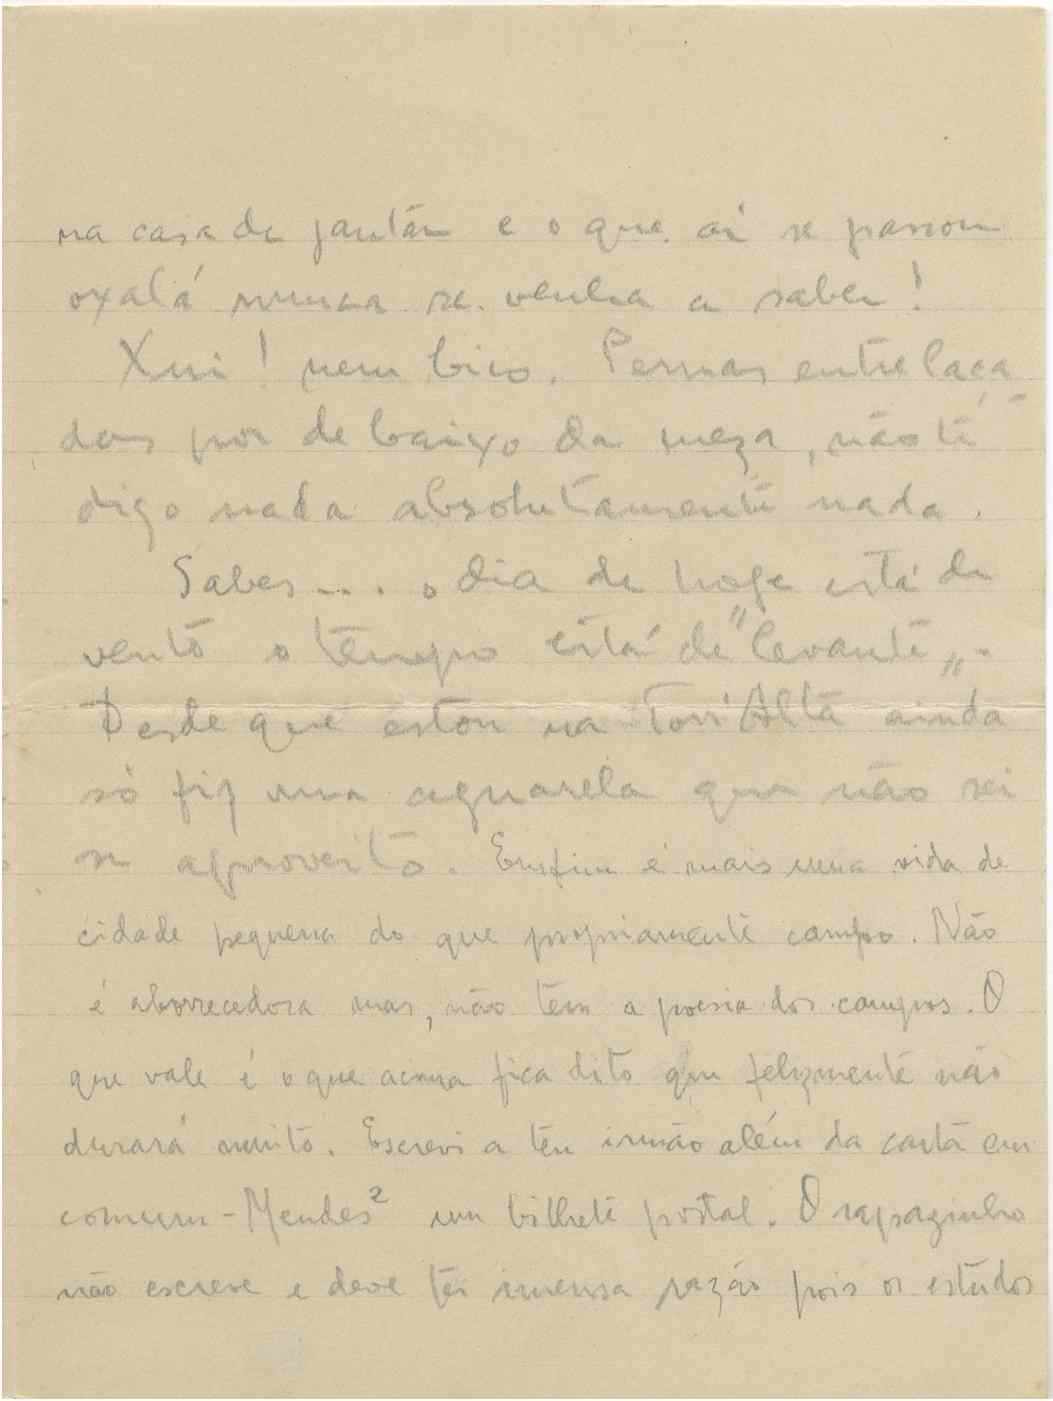 na casa de jantar e o que aí se passou
oxalá nunca se venha a saber!
Xui! nem bico. Pernas entrelaça-
das por debaixo da meza, não te
digo nada absolutamente nada.
Sabes... o dia de hoje está de
vento o tempo está de "levante".
Desde que estou na Torr'Alta ainda
só fiz uma aguarela que não sei
se aproveito. Emfim é mais uma vida de
cidade pequena do que propriamente campo. Não
é aborrecedora mas, não tem a poesia dos campos. O
que vale é o que acima fica dito que felizmente não
durará muito. Escrevi a teu irmão além da carta em
comum-Mendes² um bilhete postal. O rapazinho
não escreve e deve ter imensa razão pois os estudos